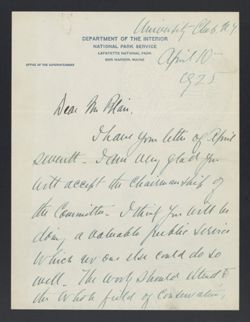 University Club, N.Y.
DEPARTMENT OF THE INTERIOR
NATIONAL PARK SERVICE
LAFAYETTE NATIONAL PARK
BAR HARBOR, MAINE
OFFICE OF THE SUPERINTENDENT
April 10
1925
Dear Mr. Blair,
I have your letter of April
seventh. I am very glad you
will accept the Chairmanship of
the Committee. I think you will be
doing a valuable public service
which no one else could do so
well. The work should extend to
the whole field of Conservation,